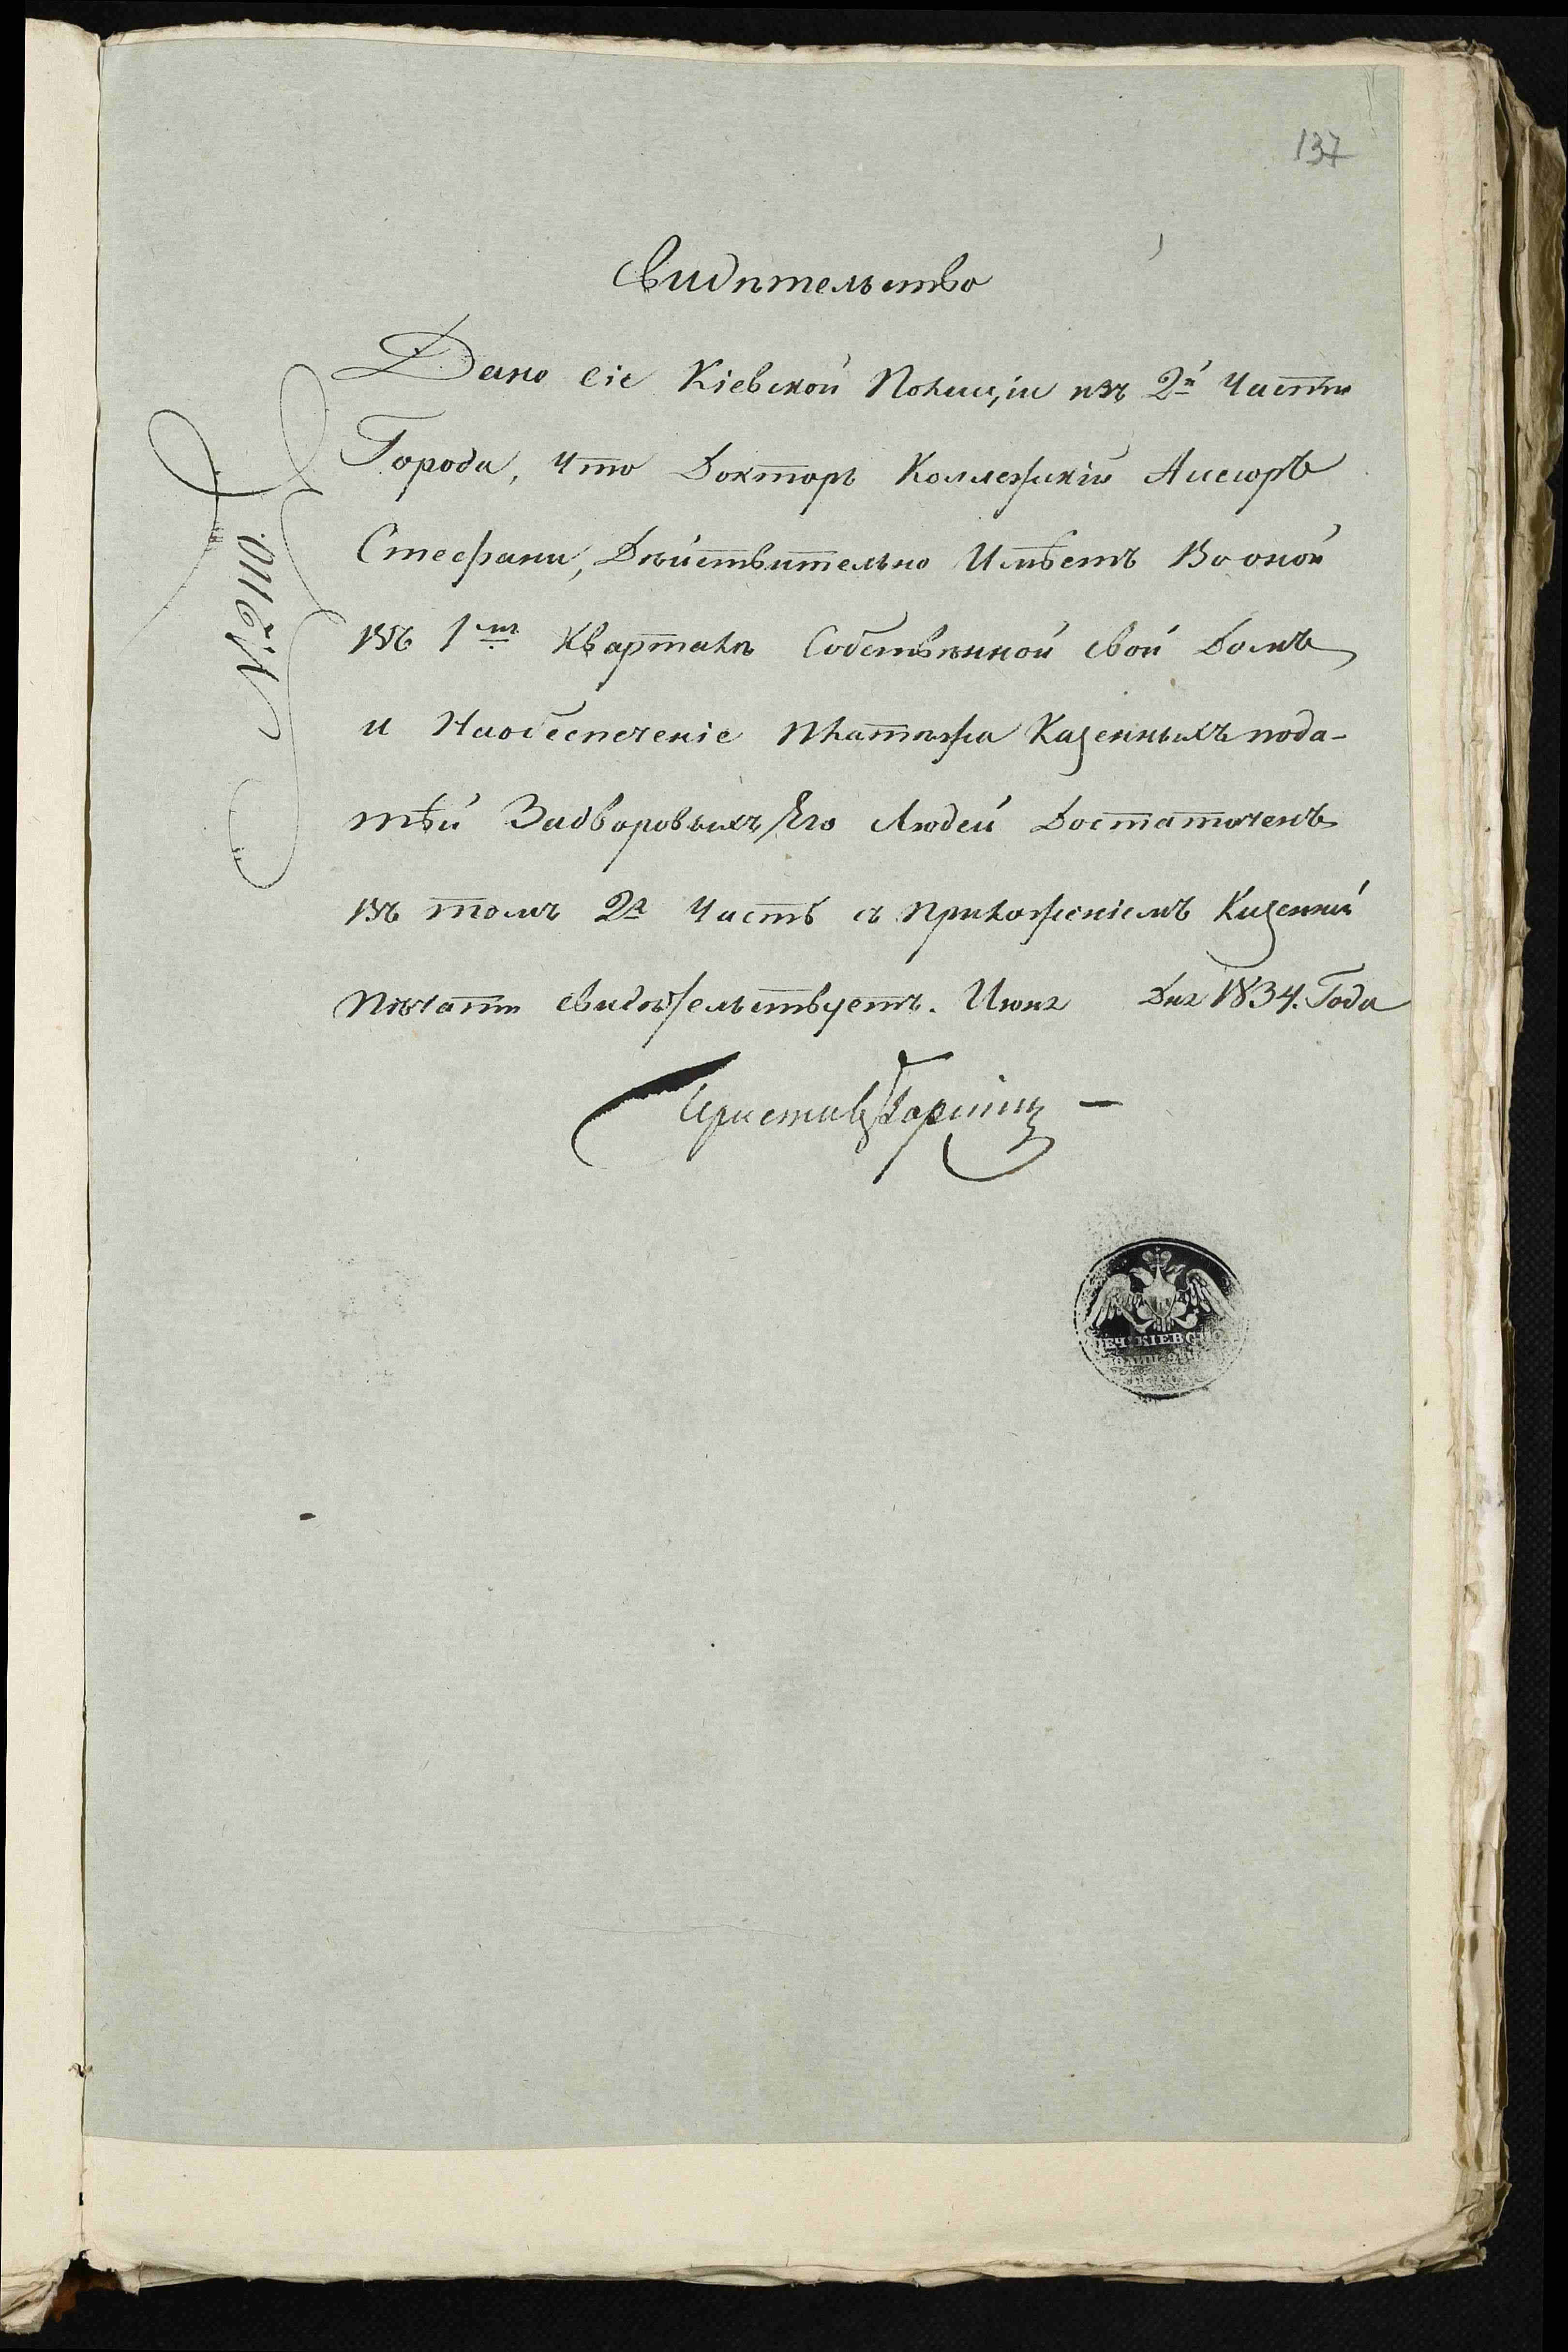 137
Свидѣтельство
Дано сіе Кіевской Полиціи изъ 2й Части
Города, что Докторъ Коллежскій Ассесоръ
Стефани, Дѣйствительно Имѣетъ Во оной
въ 1мъ Кварталѣ Собствѣнной свой Домъ
и На обеспеченіе платѣжа Казенныхъ пода-
тѣй За дворовыхъ Его Людей Достаточенъ
въ томъ 2я Часть съ приложеніемъ Казенной
Пѣчати свидѣтельствуетъ. Июня Дня 1834. Года
Приставъ
№ 2110.
ПЕЧ КІЕВС